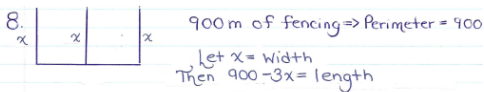 8.
x x x
900 m of fencing => Perimeter = 900
Let x = width
Then 900-3x = length